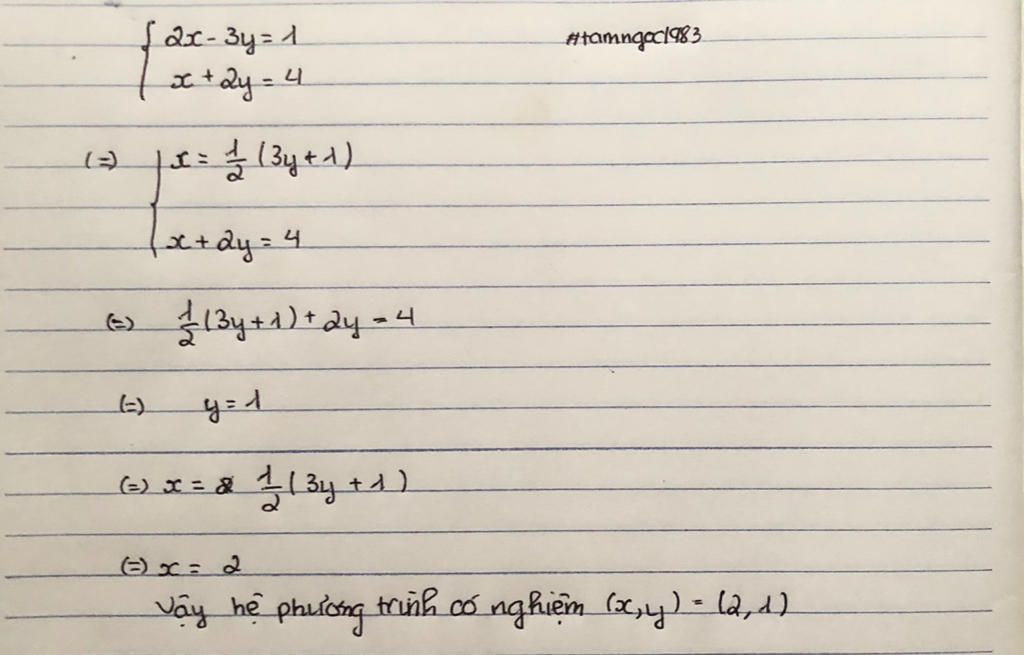 2x - 3y = 1 #tamngoc1983
x + 2y = 4
(=) x = 1/2 (3y + 1)
x + 2y = 4
(=) 1/2 (3y + 1) + 2y = 4
(=) y = 1
(=) x = 1/2 (3y + 1)
(=) x = 2
Vậy hệ phương trình có nghiệm (x,y) = (2,1)